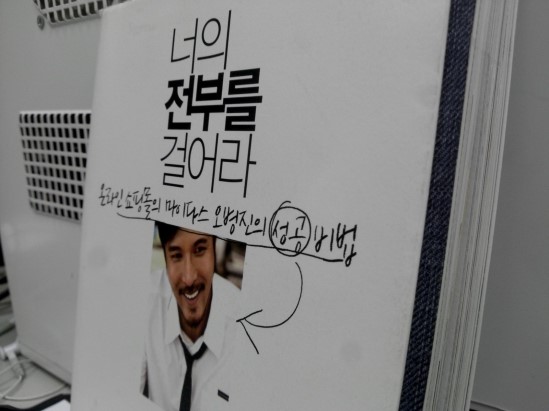 너의
전부를
걸어라
온라인 쇼핑몰의 마이다스 오병진의 성공 비법